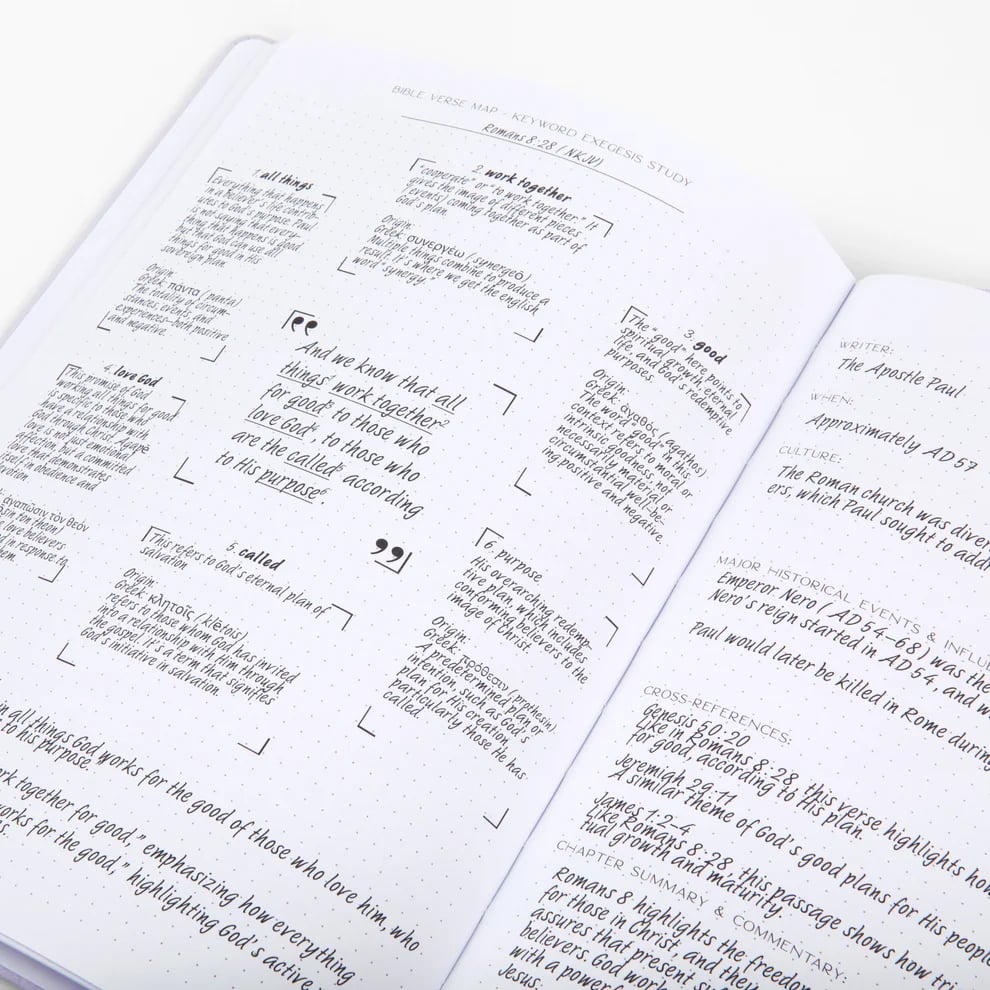 BIBLE VERSE MAP - KEYWORD EXEGESIS STUDY
Romans 8:28 (NKJV)
1. all things
Everything that happens
in a believer's life contrib-
utes to God's purpose. Paul
is not saying that every-
thing that happens is good
but that God can use all
things for good in His
sovereign plan.
Origin:
Greek: πάντα (panta)
The totality of circum-
stances, events, and
experiences—both positive
and negative.
2. work together
"cooperate" or "to work together." It
gives the image of different pieces
(events) coming together as part of
God's plan.
Origin:
Greek: συνεργέω (synergeō)
Multiple things combine to produce a
result. It's where we get the english
word "synergy."
3. good
The "good" here points to
spiritual growth, eternal
life, and God's redemptive
purposes.
Origin:
Greek: ἀγαθός (agathos)
The word "good" in this
context refers to moral or
intrinsic goodness, not
necessarily material or
circumstantial well-be-
ing positive and negative.
4. love God
This promise of God
working all things for good
is specific to those who
have a relationship with
God through Christ. Agapē
love is not just emotional
affection, but a committed
love that demonstrates
in obedience and
ἀγαπῶσιν τὸν θεόν
ton theon)
love believers
in response to
"And we know that all
things¹ work together²
for good³ to those who
love God⁴, to those who
are the called⁵ according
to His purpose⁶.
5. called
This refers to God's eternal plan of
salvation
Origin:
Greek: κλητοῖς (klētois)
refers to those whom God has invited
into a relationship with Him through
the gospel. It's a term that signifies
God's initiative in salvation.
6. purpose
His overarching redemp-
tive plan, which includes
conforming believers to the
image of Christ.
Origin:
Greek: πρόθεσιν (prothesin)
A predetermined plan or
intention, such as God's
plan for His creation,
particularly those He has
in all things God works for the good of those who love him, who
to his purpose."
work together for good," emphasizing how everything
works for the good," highlighting God's active
WRITER:
The Apostle Paul
WHEN:
Approximately AD 57
CULTURE:
The Roman church was
ers, which Paul sought to
MAJOR HISTORICAL EVENTS &
Emperor Nero (AD 54–68) was the
Nero's reign started in AD 54, and
Paul would later be killed in Rome during
CROSS-REFERENCES:
Genesis 50:20
Like in Romans 8:28, this verse highlights how
for good, according to His plan.
Jeremiah 29:11
A similar theme of God's good plans for His people
James 1:2-4
Like Romans 8:28, this passage shows how
tual growth and maturity.
CHAPTER SUMMARY & COMMENTARY:
Romans 8 highlights the freedom
for those in Christ, and they
assures that present
believers. God
with a
Jesus.